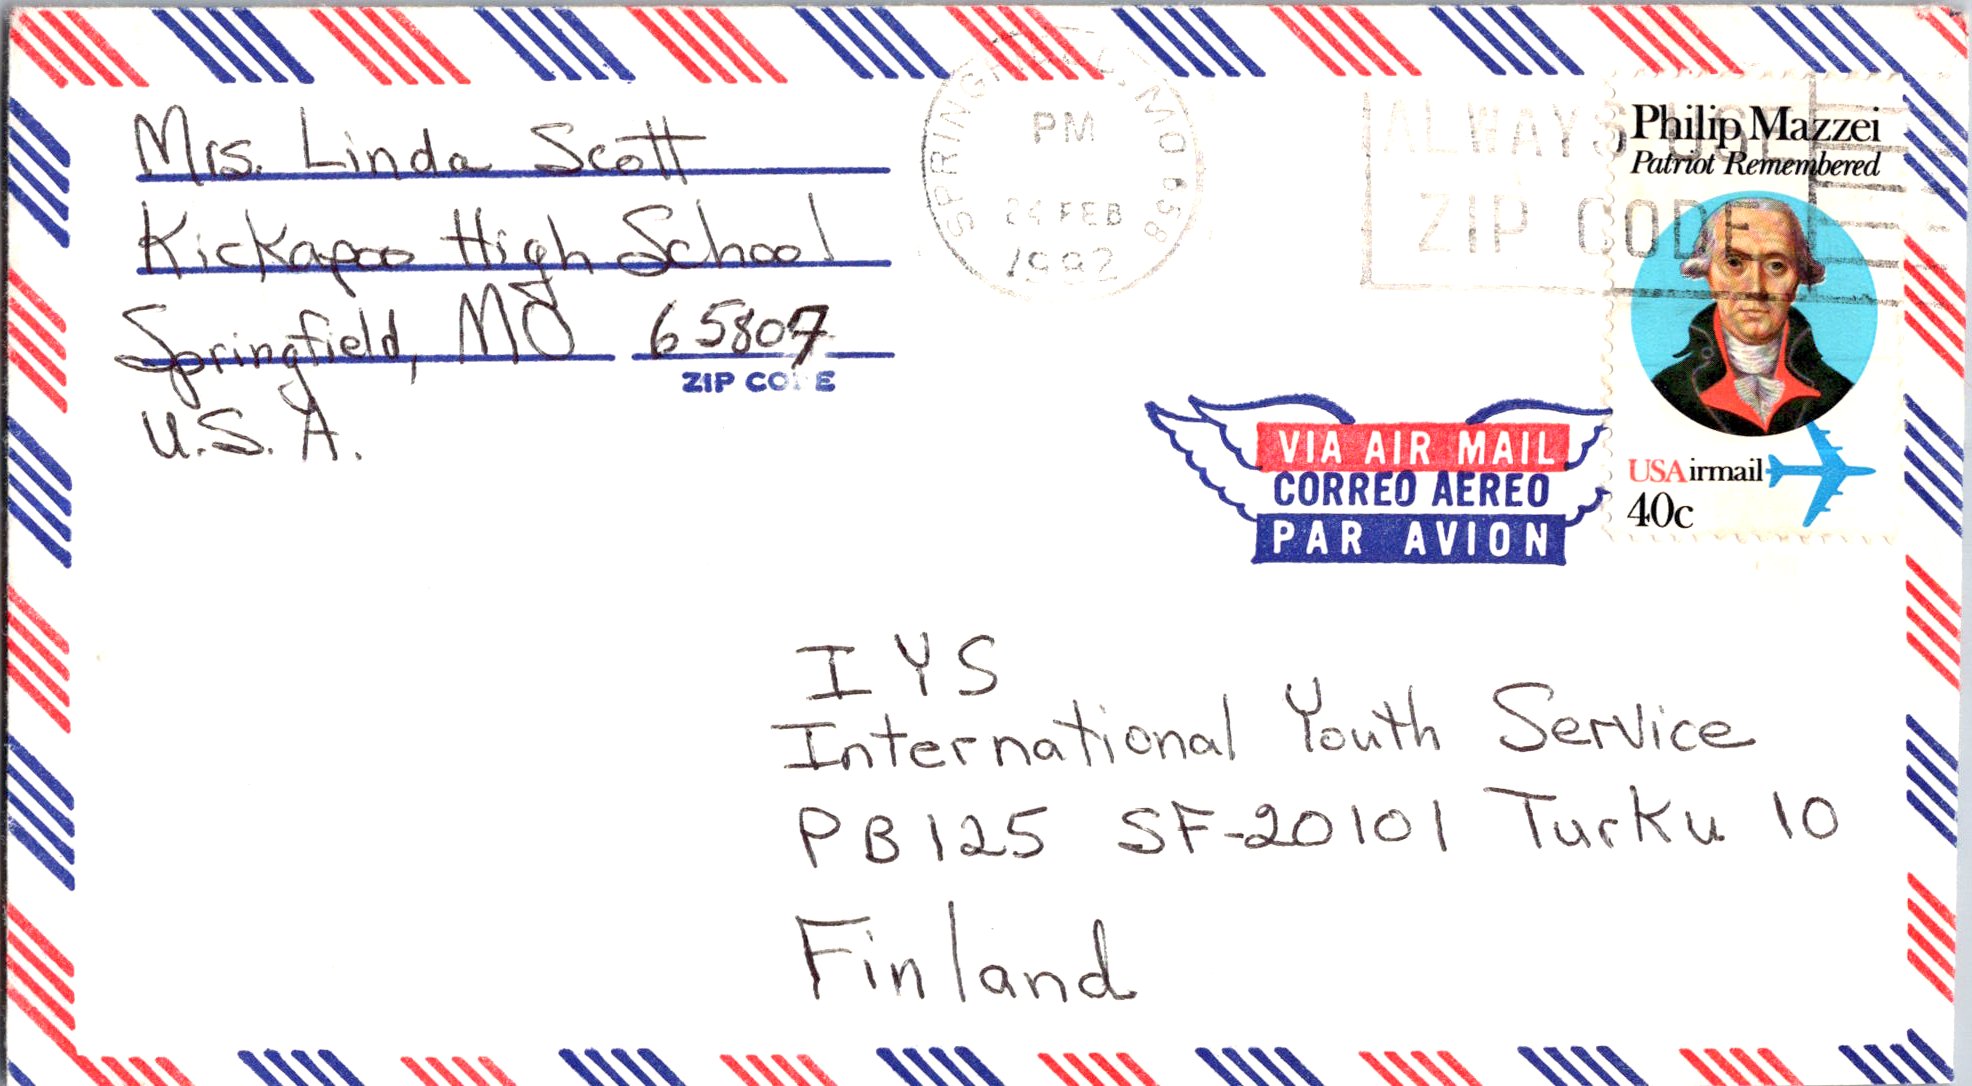 Mrs. Linda Scott
Kickapoo High School
Springfield, MO 65807
ZIP CODE
U.S.A.
SPRINGFIELD, MO 658
PM
24 FEB
1992
ALWAYS USE
ZIP CODE
Philip Mazzei
Patriot Remembered
USAirmail
40c
VIA AIR MAIL
CORREO AEREO
PAR AVION
IYS
International Youth Service
PB125 SF-20101 Turku 10
Finland